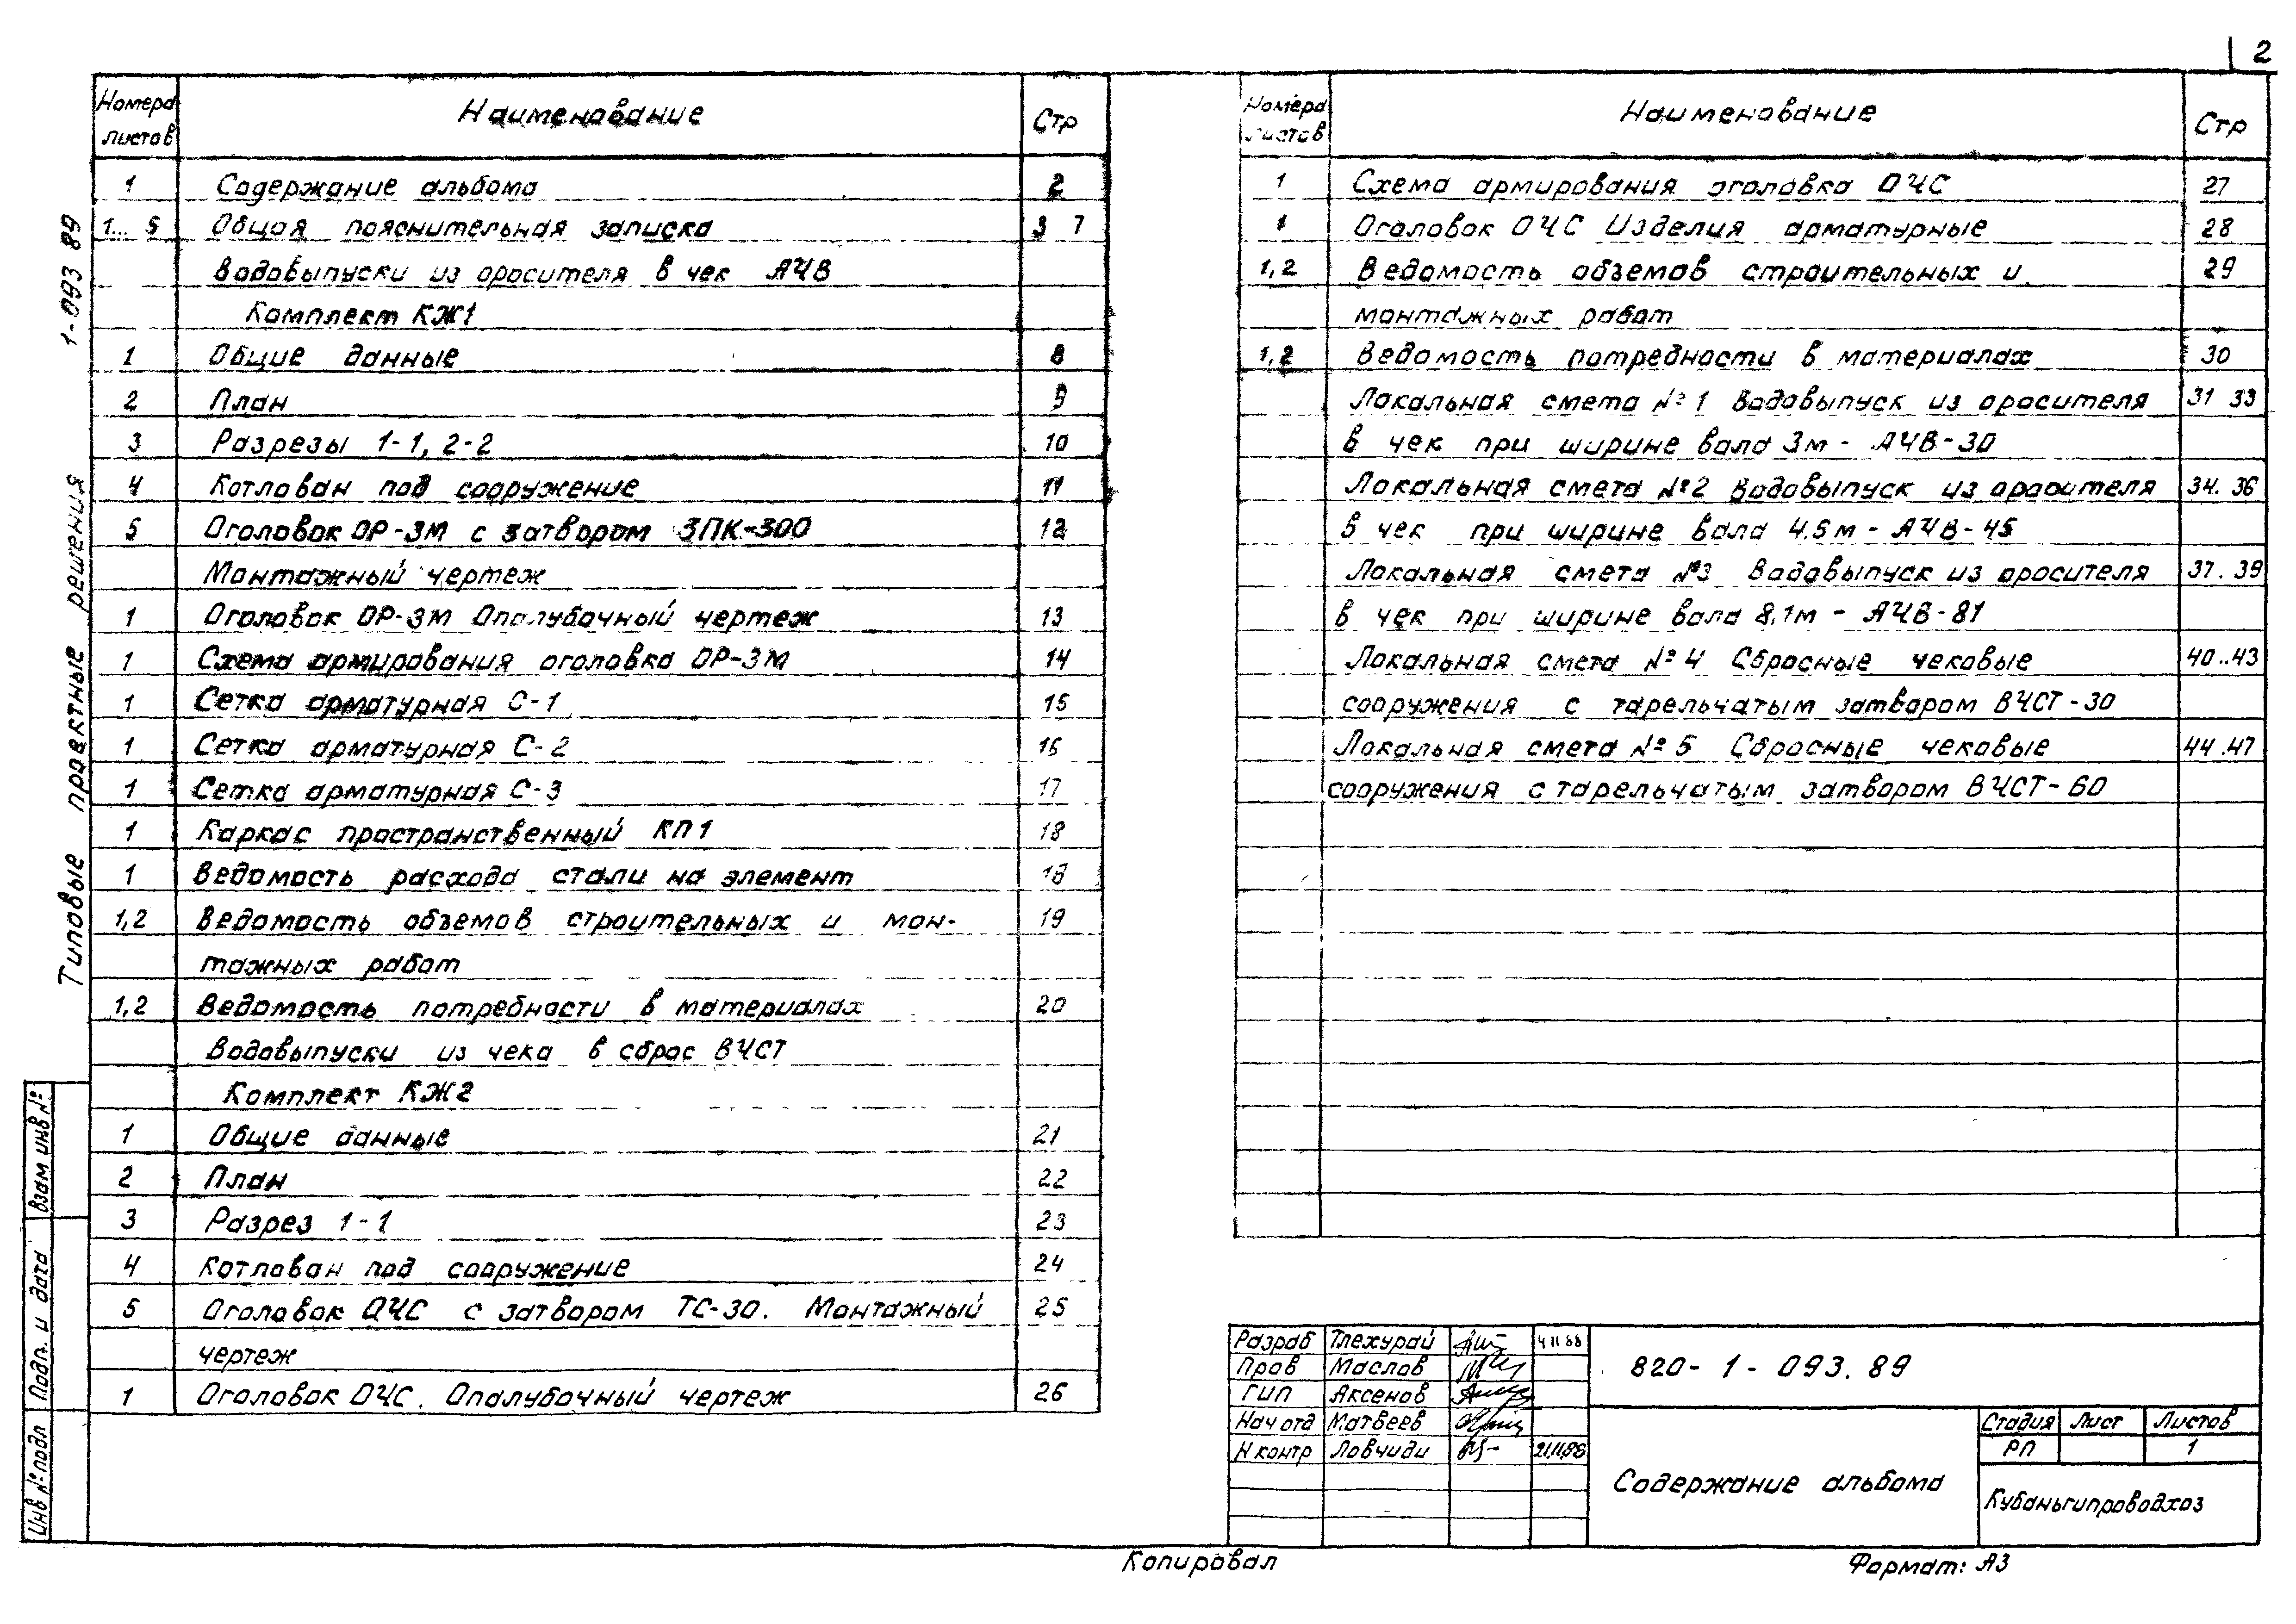 2
Номера листов Наименование Стр
1 Содержание альбома 2
1... 5 Общая пояснительная записка 3 7
Водовыпуски из оросителя в чек АЧВ
Комплект КЖ1
1 Общие данные 8
2 План 9
3 Разрезы 1-1, 2-2 10
4 Котлован под сооружение 11
5 Оголовок ОР-3М с затвором ЗПК-300 12
Монтажный чертеж
1 Оголовок ОР-3М Опалубочный чертеж 13
1 Схема армирования оголовка ОР-3М 14
1 Сетка арматурная С-1 15
1 Сетка арматурная С-2 16
1 Сетка арматурная С-3 17
1 Каркас пространственный КП1 18
1 Ведомость расхода стали на элемент 18
1,2 Ведомость обземов строительных и мон-
тажных работ 19
1,2 Ведомость потребности в материалах 20
Водовыпуски из чека в сброс ВЧСТ
Комплект КЖ2
1 Общие данные 21
2 План 22
3 Разрез 1-1 23
4 Котлован под сооружение 24
5 Оголовок ОЧС с затвором ТС-30. Монтажный 25
чертеж
1 Оголовок ОЧС. Опалубочный чертеж 26
Номера листов Наименование Стр
1 Схема армирования оголовка ОЧС 27
1 Оголовок ОЧС Изделия арматурные 28
1,2 Ведомость обземов строительных и 29
монтажных работ
1,2 Ведомость потребности в материалах 30
Локальная смета №1 Водовыпуск из оросителя 31 33
в чек при ширине вала 3м - АЧВ-30
Локальная смета №2 Водовыпуск из оросителя 34. 36
в чек при ширине вала 4.5м - АЧВ-45
Локальная смета №3 Водовыпуск из оросителя 37. 39
в чек при ширине вала 8,1м - АЧВ-81
Локальная смета №4 Сбросные чековые 40..43
сооружения с тарельчатым затвором ВЧСТ-30
Локальная смета №5 Сбросные чековые 44.47
сооружения с тарельчатым затвором ВЧСТ-60
Типовые проектные решения 1-093 89
Взам инв №:
Подп. и дата
Инв № подл
Разраб Тлехурай 4 11 88
Пров Маслов
ГИП Аксенов
Нач отд Матвеев
Н контр Ловчиди 21.11.88
820-1-093.89
Содержание альбома
Стадия Лист Листов
РП 1
Кубаньгипроводхоз
Копировал
Формат: А3